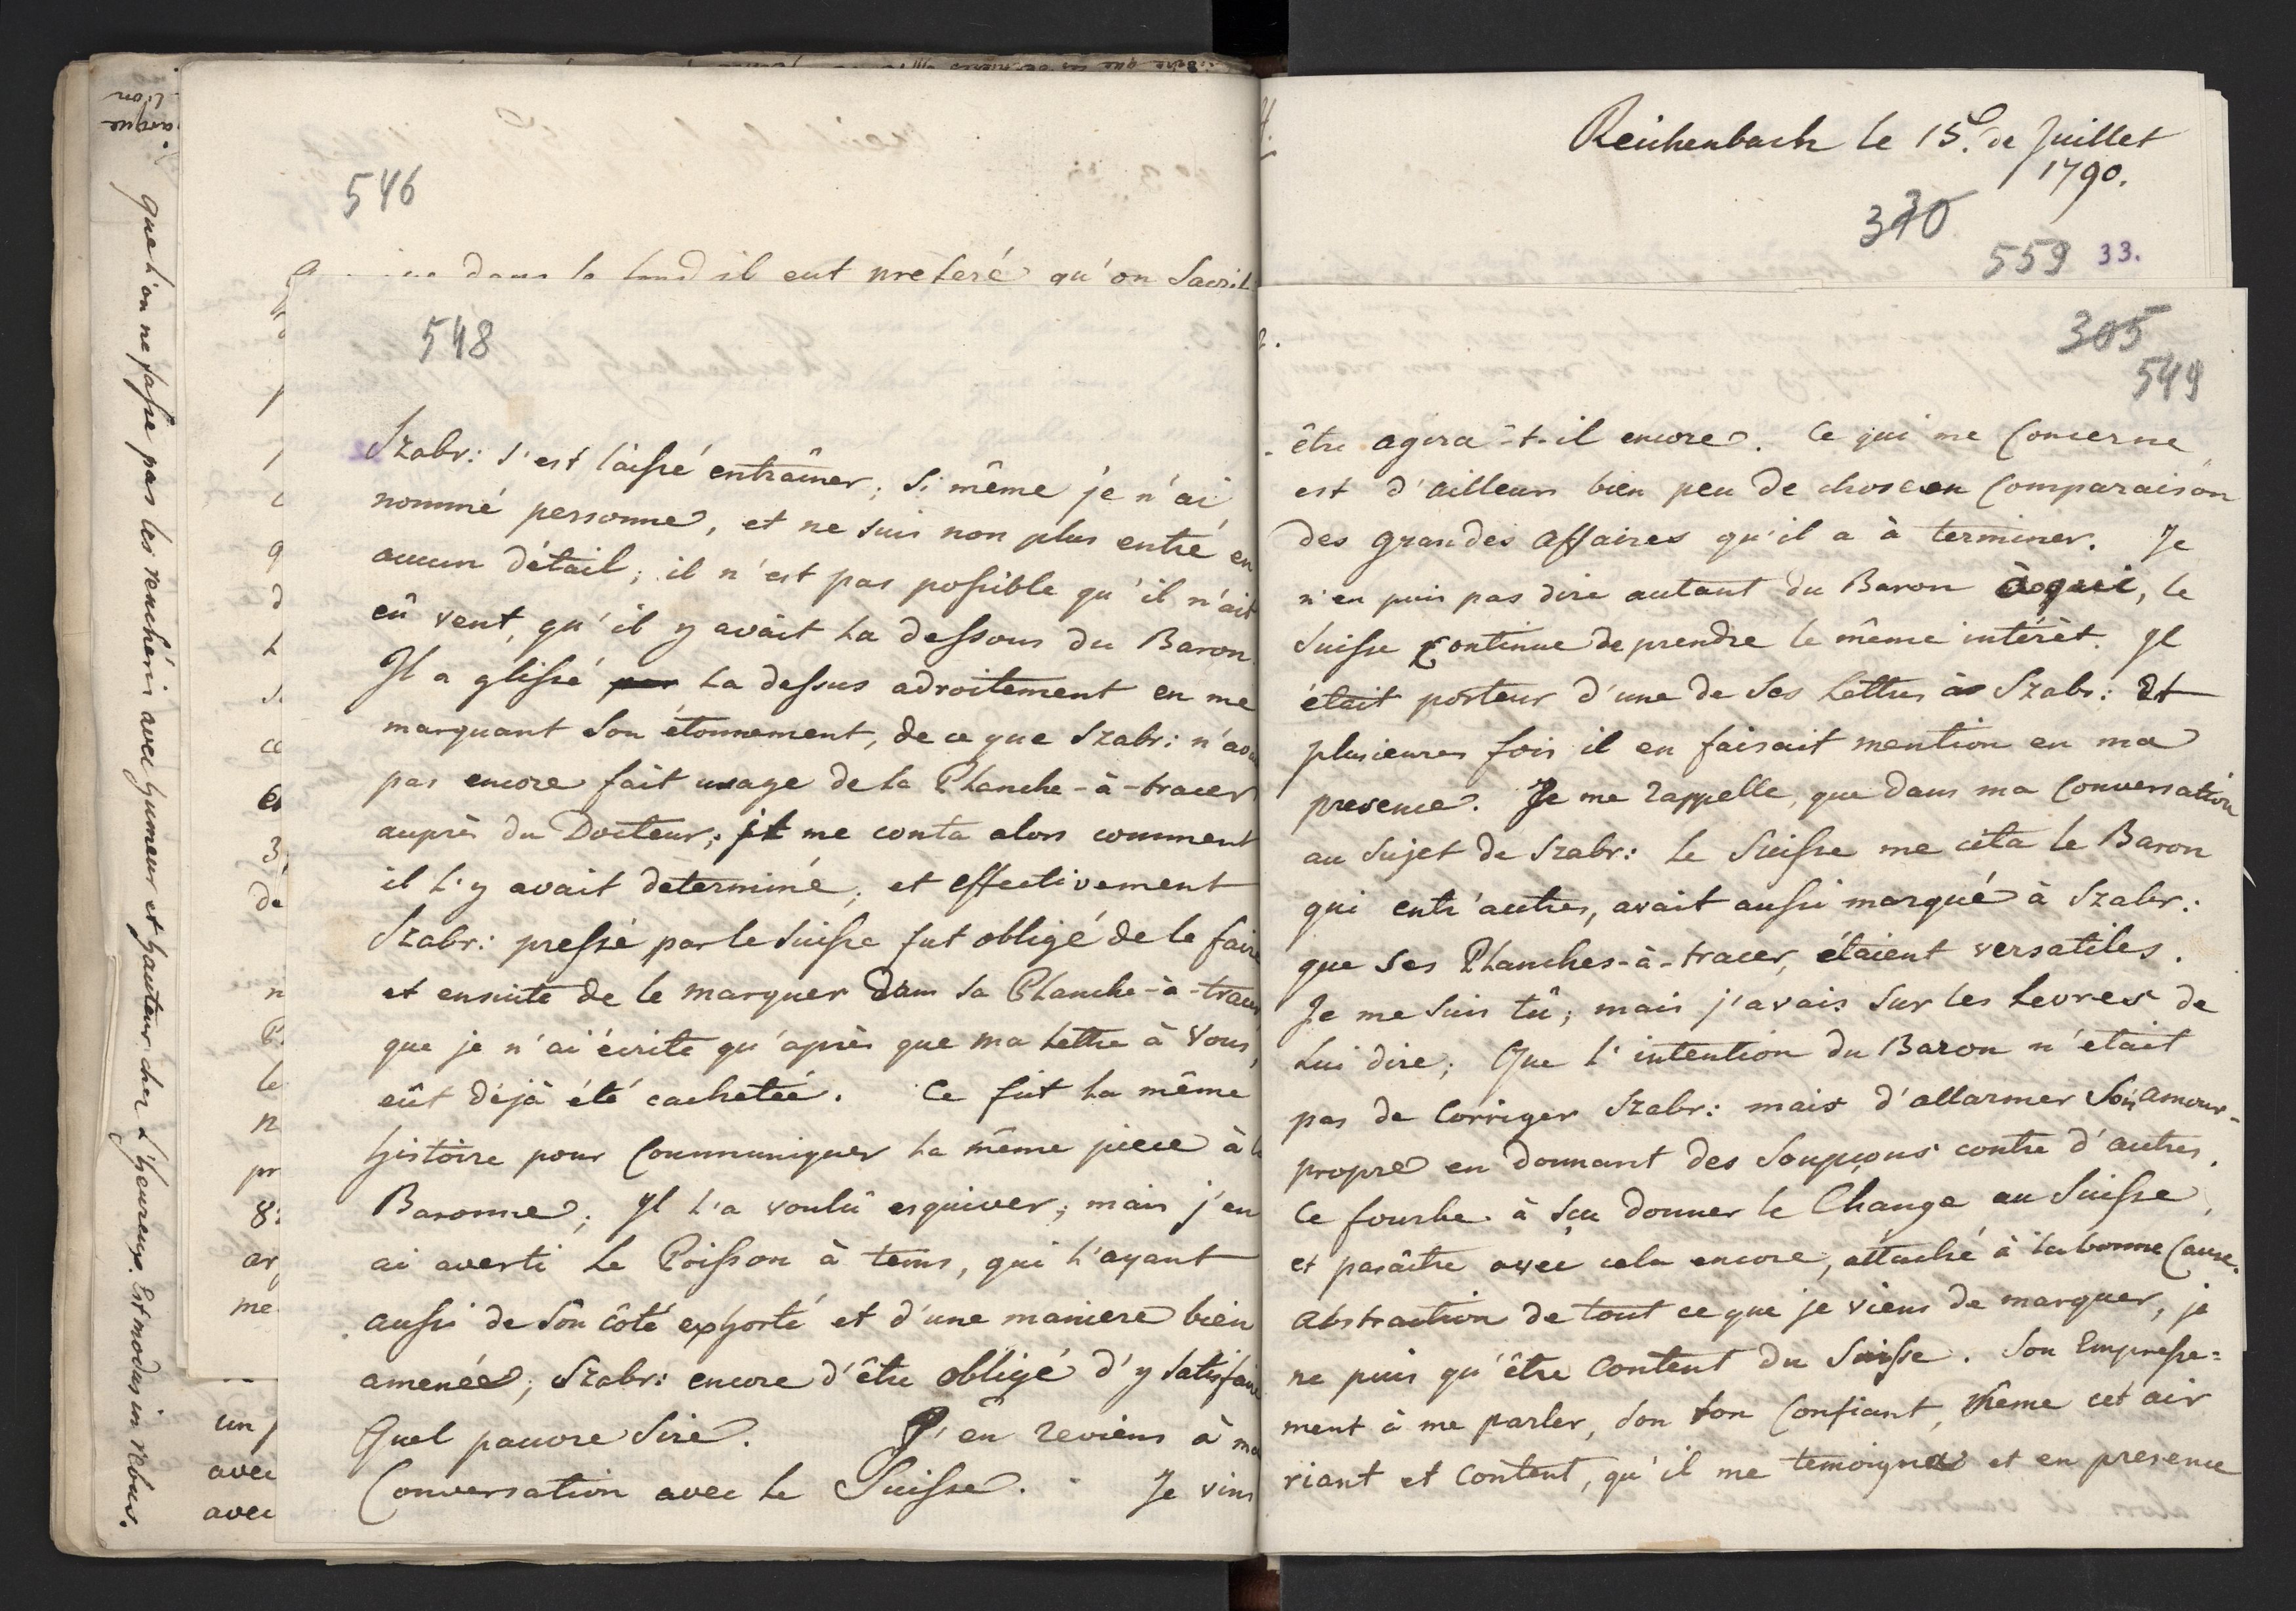 que l'on ne fasse pas les renchéris avec humeur et hauteur chez L'heureux. Est modus in rebus.
546
dans le fond il eut preferé qu'on Sacrif
548
Szabr: s'est laissé entraîner; Si même je n'ai
nommé personne, et ne suis non plus entré en
aucun détail; il n'est pas possible qu'il n'ait
eû vent, qu'il y avait la dessous du Baron.
Il a glissé la dessus adroitement en me
marquant son étonnement, de ce que Szabr: n'avait
pas encore fait usage de la Planche-à-tracer
auprès du Docteur; il me conta alors comment
il l'y avait determiné; et effectivement
Szabr: pressé par le Suisse fut obligé de le faire
et ensuite de le marquer dans sa Planche-à-tracer
que je n'ai écrite qu'après que ma lettre à Vous,
eût déjà été cachetée. Ce fut la même
histoire pour Communiquer la même piece à la
Baronne; Il l'a voulû esquiver; mais j'en
ai averti le Poisson à tems, qui l'ayant
aussi de son côté exhorté et d'une maniere bien
amenée; Szabr: encore d'être obligé d'y satisfaire
Quel pauvre Sire. J'en reviens à ma
Conversation avec le Suisse. Je vins
un
avec
avec
Reichenbach le 15. de Juillet
1790.
330
559 33.
305
549
-être agira-t-il encore. Ce qui me Concerne
est d'ailleurs bien peu de chose en Comparaison
des grandes affaires qu'il a à terminer. Je
n'en puis pas dire autant du Baron à qui, le
Suisse Continue de prendre le même intérêt. Il
était porteur d'une de Ses lettres à Szabr: Et
plusieures fois il en faisait mention en ma
presence. Je me rappelle, que dans ma Conversation
au Sujet de Szabr: le Suisse me cita le Baron
qui entr'autres, avait aussi marqué à Szabr:
que Ses Planches-à-tracer, étaient versatiles.
Je me suis tû; mais j'avais sur les levres de
lui dire; Que l'intention du Baron n'etait
pas de Corriger Szabr: mais d'allarmer Son amour-
propre en donnant des Soupçons contre d'autres.
Ce fourbe à sçu donner le Change au Suisse,
et paraître avec cela encore, attaché à la bonne Cause.
Abstraction de tout ce que je viens de marquer, je
ne puis qu'être Content du Suisse. Son Empresse=
ment à me parler, son ton Confiant, même cet air
riant et Content, qu'il me temoigna et en presence